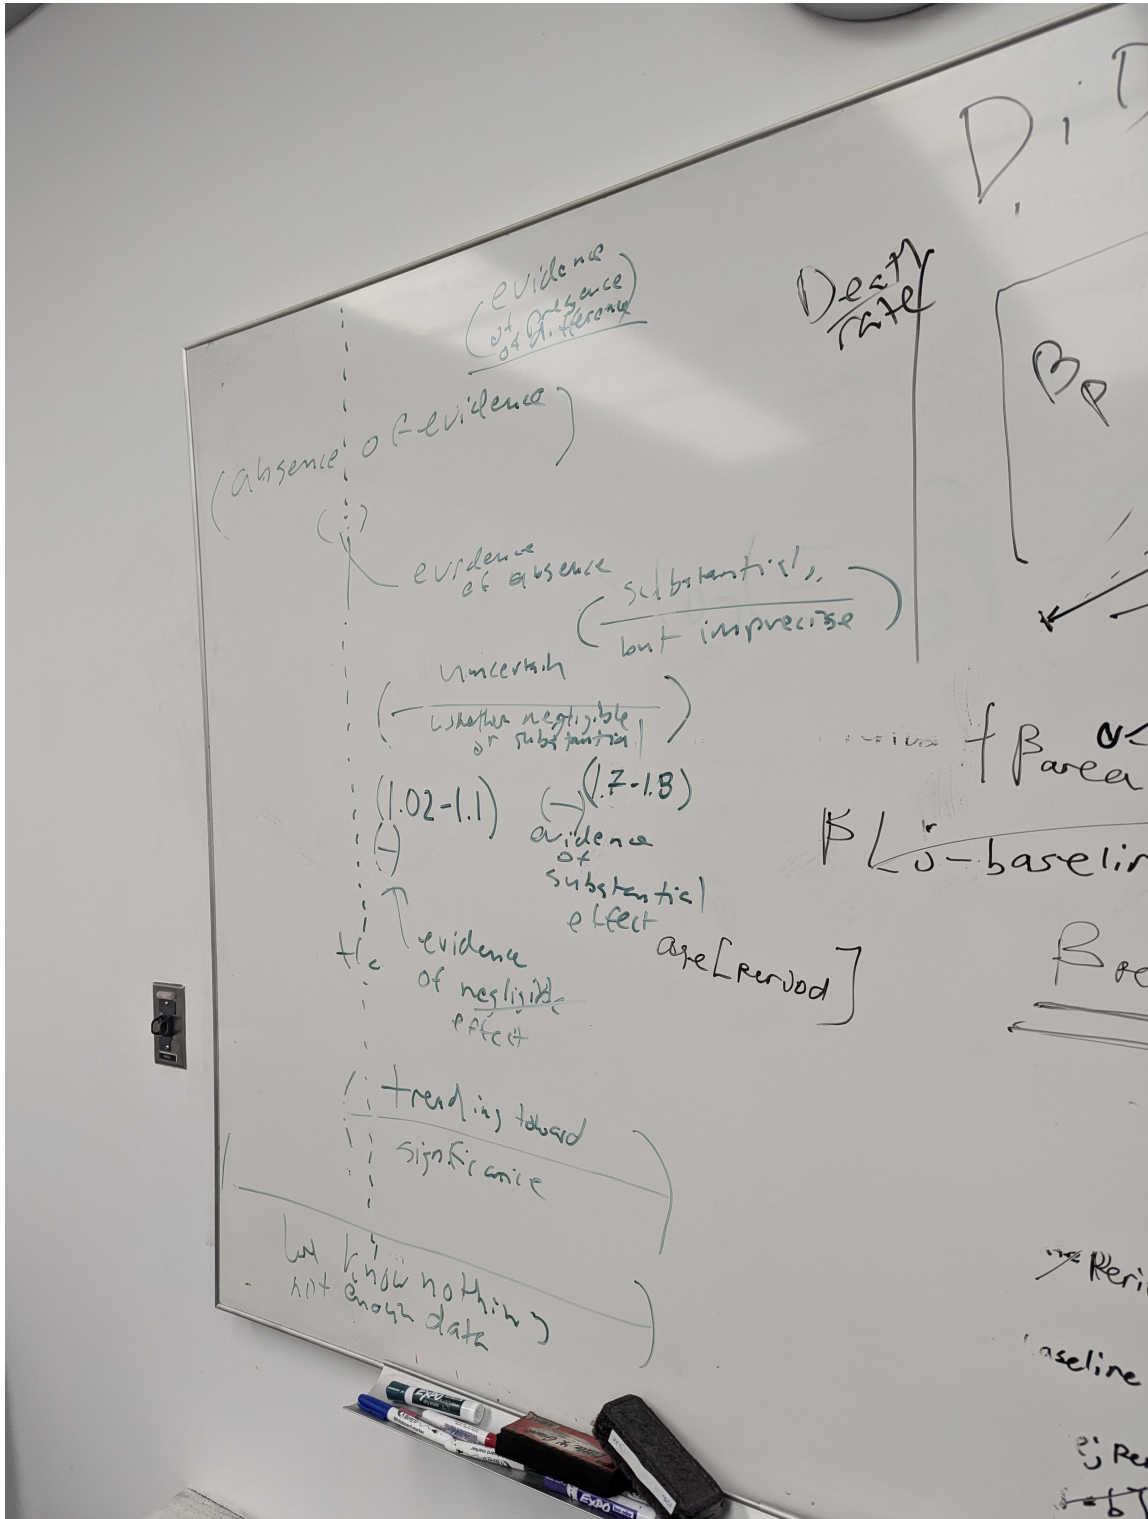 (evidence
of presence
of difference)
(absence of evidence)
( )
evidence
of absence
(substantial,
but imprecise)
(uncertain
whether negligible
or substantial)
(1.02-1.1)
(1.7-1.8)
(-)
(-)
evidence
of
substantial
effect
evidence
of negligible
effect
(trending toward
significance
we know nothing
not enough data
D
Death
rate
βp
+ βarea
β[j-baselin
age[period]
β
Peri
aseline
EXPO
EXPO